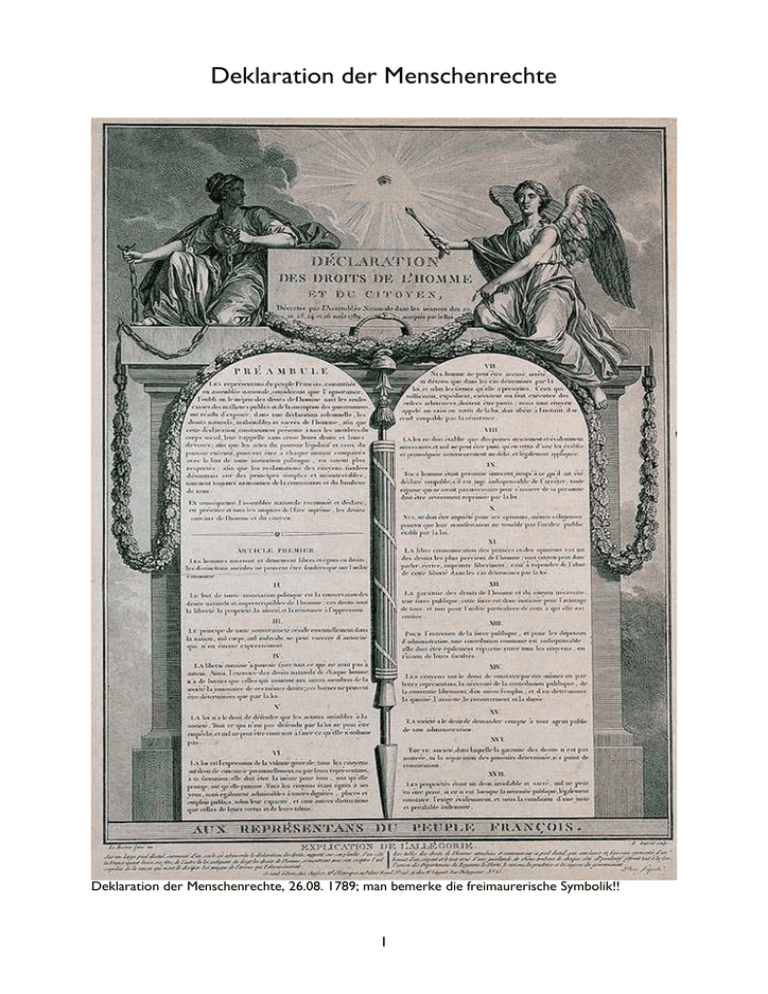 Deklaration der Menschenrechte
DÉCLARATION
DES DROITS DE L'HOMME
ET DU CITOYEN,
Décretés par l'Assemblée Nationale dans les séances des 20,
PRÉAMBULE
LES représentans du peuple François, constitués
en assemblée nationale, considérant que l'ignorance,
l'oubli ou le mépris des droits de l'homme sont les seules
causes des malheurs publics et de la corruption des gouvernemens,
ont résolu d'exposer, dans une déclaration solemnelle, les
droits naturels, inaliénables et sacrés de l'homme; afin que
cette déclaration, constamment présente à tous les membres du
corps social, leur rappelle sans cesse leurs droits et leurs
devoirs; afin que les actes du pouvoir législatif et ceux du
pouvoir exécutif, pouvant être à chaque instant comparés
avec le but de toute institution politique, en soient plus
respectés; afin que les réclamations des citoyens, fondées
désormais sur des principes simples et incontestables,
tournent toujours au maintien de la constitution et du bonheur
de tous.
EN conséquence, l'assemblée nationale reconnoit et déclare,
en présence et sous les auspices de l'Être suprême, les droits
suivans de l'homme et du citoyen.
ARTICLE PREMIER.
LES hommes naissent et demeurent libres et égaux en droits,
les distinctions sociales ne peuvent être fondées que sur l'utilité
commune.
II.
LE but de toute association politique est la conservation des
droits naturels et imprescriptibles de l'homme; ces droits sont
la liberté, la propriété, la sureté, et la résistance à l'oppression.
III.
LE principe de toute souveraineté réside essentiellement dans
la nation, nul corps, nul individu ne peut exercer d'autorité
qui n'en émane expressément.
IV.
LA liberté consiste à pouvoir faire tout ce qui ne nuit pas à
autrui. Ainsi, l'exercice des droits naturels de chaque homme
n'a de bornes que celles qui assurent aux autres membres de la
société la jouissance de ces mêmes droits; ces bornes ne peuvent
être déterminées que par la loi.
V.
LA loi n'a le droit de défendre que les actions nuisibles à la
société. Tout ce qui n'est pas défendu par la loi ne peut être
empêché, et nul ne peut être contraint à faire ce qu'elle n'ordonne
pas.
VI.
LA loi est l'expression de la volonté générale; tous les citoyens
ont droit de concourir personnellement, ou par leurs représentans,
à sa formation; elle doit être la même pour tous, soit qu'elle
protege, soit qu'elle punisse. Tous les citoyens étant égaux à ses
yeux, sont également admissibles à toutes dignités, places et
emplois publics, selon leur capacité, et sans autres distinctions
que celles de leurs vertus et de leurs talens.
VII.
NUL homme ne peut être accusé, arrêté
ni détenu que dans les cas déterminés par la
loi, et selon les formes qu'elle a prescrites. Ceux qui
sollicitent, expédient, exécutent ou font exécuter des
ordres arbitraires, doivent être punis; mais tout citoyen
appelé ou saisi en vertu de la loi, doit obéir à l'instant, il se
rend coupable par la résistance.
VIII.
LA loi ne doit établir que des peines strictement et évidemment
nécessaires, et nul ne peut être puni qu'en vertu d'une loi établie
et promulguée antérieurement au délit, et légalement appliquée.
IX.
TOUT homme étant présumé innocent jusqu'à ce qu'il ait été
déclaré coupable, s'il est jugé indispensable de l'arrêter, toute
rigueur qui ne seroit pas nécessaire pour s'assurer de sa personne
doit être sévèrement réprimée par la loi.
X.
NUL ne doit être inquiété pour ses opinions, mêmes religieuses
pourvu que leur manifestation ne trouble pas l'ordre public
établi par la loi.
XI.
LA libre communication des pensées et des opinions est un
des droits les plus précieux de l'homme; tout citoyen peut donc
parler, écrire, imprimer librement; sauf à répondre de l'abus
de cette liberté dans les cas déterminés par la loi.
XII.
LA garantie des droits de l'homme et du citoyen nécessite
une force publique; cette force est donc instituée pour l'avantage
de tous, et non pour l'utilité particuliere de ceux à qui elle est
confiée.
XIII.
POUR l'entretien de la force publique, et pour les dépenses
d'administration, une contribution commune est indispensable;
elle doit être également répartie entre tous les citoyens, en
raison de leurs facultés.
XIV.
LES citoyens ont le droit de constater par eux-mêmes ou par
leurs représentans, la nécessité de la contribution publique, de
la consentir librement, d'en suivre l'emploi, et d'en déterminer
la quotité, l'assiette, le recouvrement et la durée.
XV.
LA société a le droit de demander compte à tout agent public
de son administration.
XVI.
TOUTE société, dans laquelle la garantie des droits n'est pas
assurée, ni la séparation des pouvoirs déterminée, n'a point de
constitution.
XVII.
LES propriétés étant un droit inviolable et sacré, nul ne peut
en être privé, si ce n'est lorsque la nécessité publique, légalement
constatée, l'exige évidemment, et sous la condition d'une juste
et préalable indemnité.
AUX REPRÉSENTANS DU PEUPLE FRANÇOIS.
EXPLICATION DE L'ALLÉGORIE.
Deklaration der Menschenrechte, 26.08. 1789; man bemerke die freimaurerische Symbolik!!
1